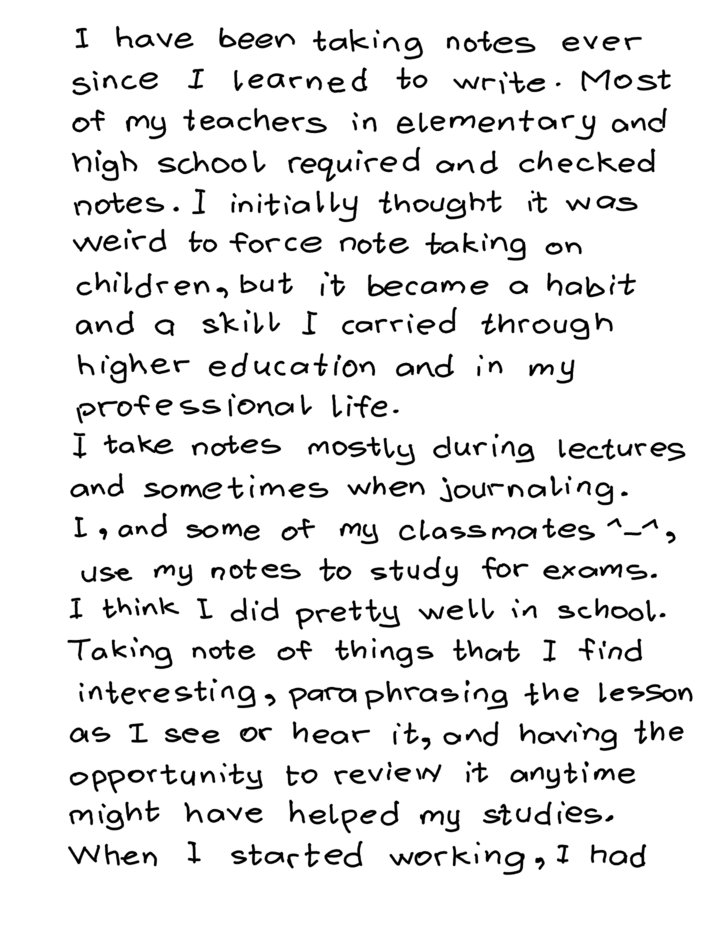 I have been taking notes ever
since I learned to write. Most
of my teachers in elementary and
high school required and checked
notes. I initially thought it was
weird to force note taking on
children, but it became a habit
and a skill I carried through
higher education and in my
professional life.
I take notes mostly during lectures
and sometimes when journaling.
I, and some of my classmates ^_^,
use my notes to study for exams.
I think I did pretty well in school.
Taking note of things that I find
interesting, paraphrasing the lesson
as I see or hear it, and having the
opportunity to review it anytime
might have helped my studies.
When I started working, I had